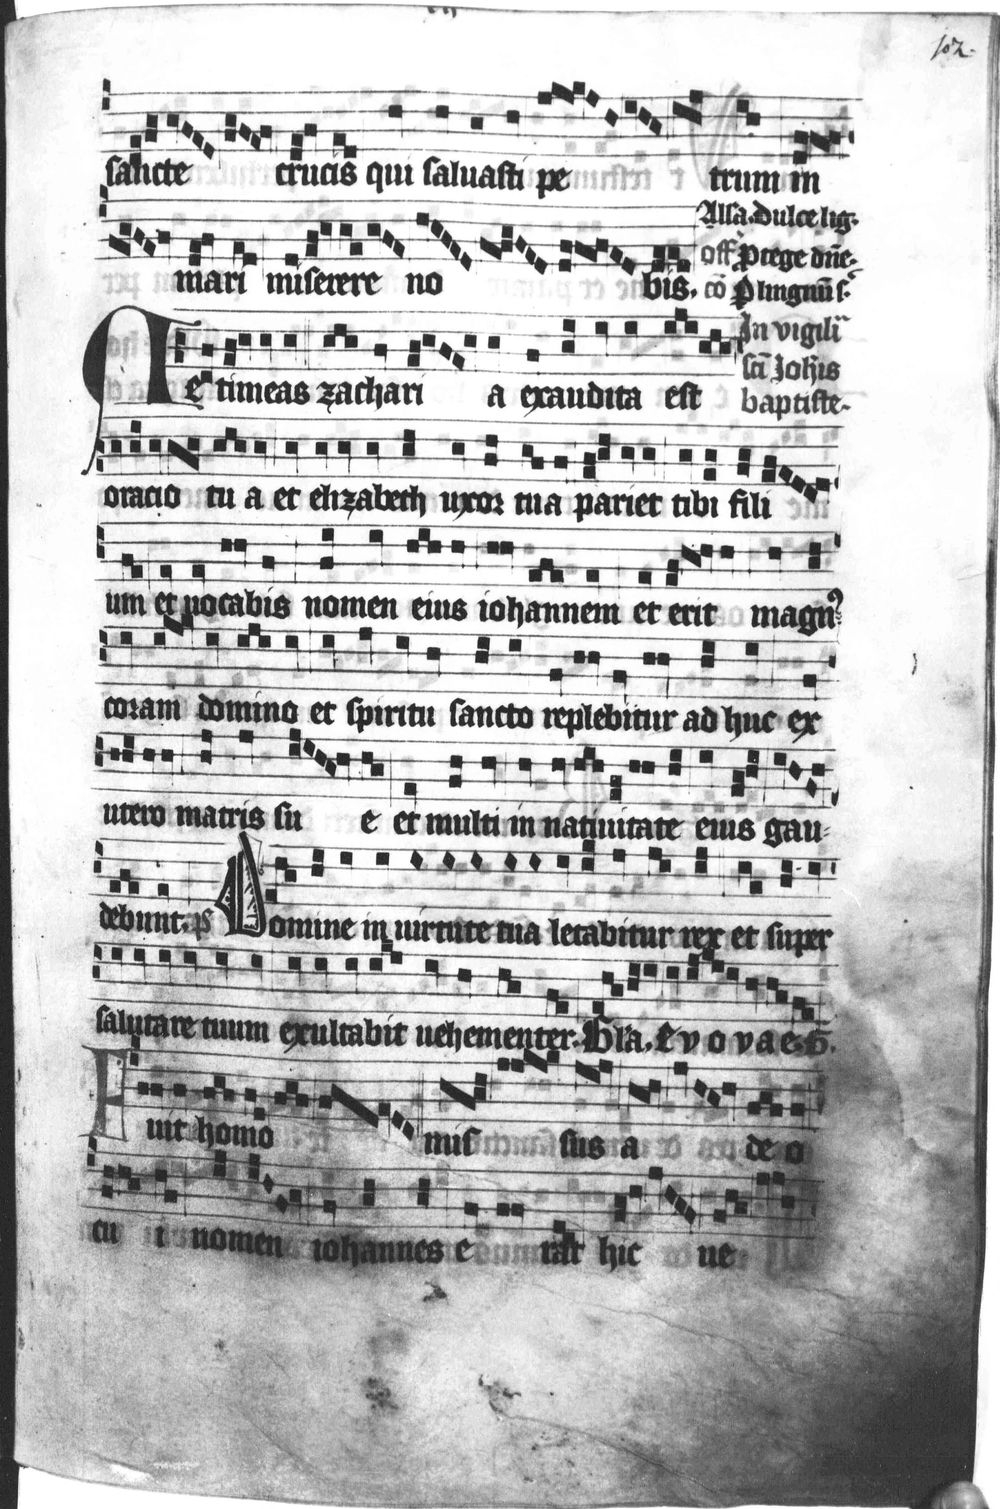 102.
sancte crucis qui saluasti pe trum in
Alla. Dulce lig.
mari miserere no bis. off Protege dne.
co P lingnu s.
In vigili
sci Johis
baptiste.
Ne timeas zachari a exaudita est
oracio tu a et elizabeth uxor tua pariet tibi fili
um et uocabis nomen eius iohannem et erit magn
coram domino et spiritu sancto replebitur ad huc ex
utero matris su e et multi in natiuitate eius gau-
debunt. ps Domine in uirtute tua letabitur rex et super
salutare tuum exultabit uehementer. Gla. E v o v a e. G.
Fuit homo mis sus a de o
cu i nomen iohannes e rat hic ue